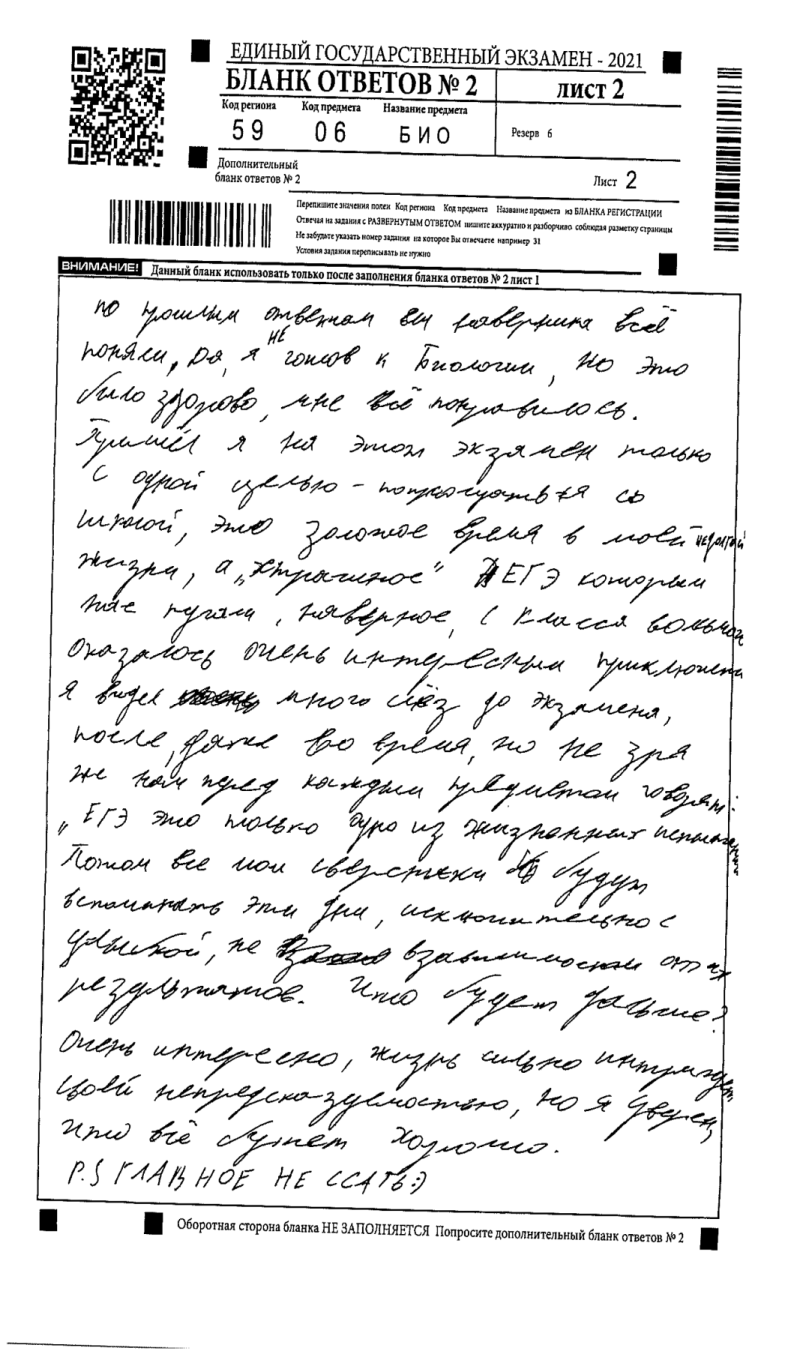 ЕДИНЫЙ ГОСУДАРСТВЕННЫЙ ЭКЗАМЕН - 2021
БЛАНК ОТВЕТОВ № 2
ЛИСТ 2
Код региона Код предмета Название предмета
59 06 БИО
Резерв 6
Дополнительный
бланк ответов № 2
Лист 2
Перепишите значения полей Код региона Код предмета Название предмета из БЛАНКА РЕГИСТРАЦИИ
Отвечая на задания с РАЗВЕРНУТЫМ ОТВЕТОМ пишите аккуратно и разборчиво соблюдая разметку страницы
Не забудьте указать номер задания на которое Вы отвечаете например 31
Условия задания переписывать не нужно
ВНИМАНИЕ! Данный бланк использовать только после заполнения бланка ответов № 2 лист 1
по прошлым ответам вы наверника всё
поняли, да, я не готов к Биологии, но это
было здорово, мне всё понравилось.
Пришёл я на этот экзамен только
с одной целью - попрощаться со
школой, это золотое время в моей недолгой
жизни, а „страшное" ЕГЭ которым
нас пугали, наверное, с класса
оказалось очень интересным
я видел много слёз до экзамена,
после, даже во время, но не зря
же нам перед каждым предметом говорят:
„ЕГЭ это только одно из жизненных
Потом все мои сверстники будут
вспоминать эти дни, исключительно с
улыбкой, не взависимости от их
результатов. Что будет дальше?
Очень интересно, жизнь сильно интригует
своей непредсказуемостью, но я уверен,
что всё будет хорошо.
P.S ГЛАВНОЕ НЕ ССАТЬ:)
Оборотная сторона бланка НЕ ЗАПОЛНЯЕТСЯ Попросите дополнительный бланк ответов № 2